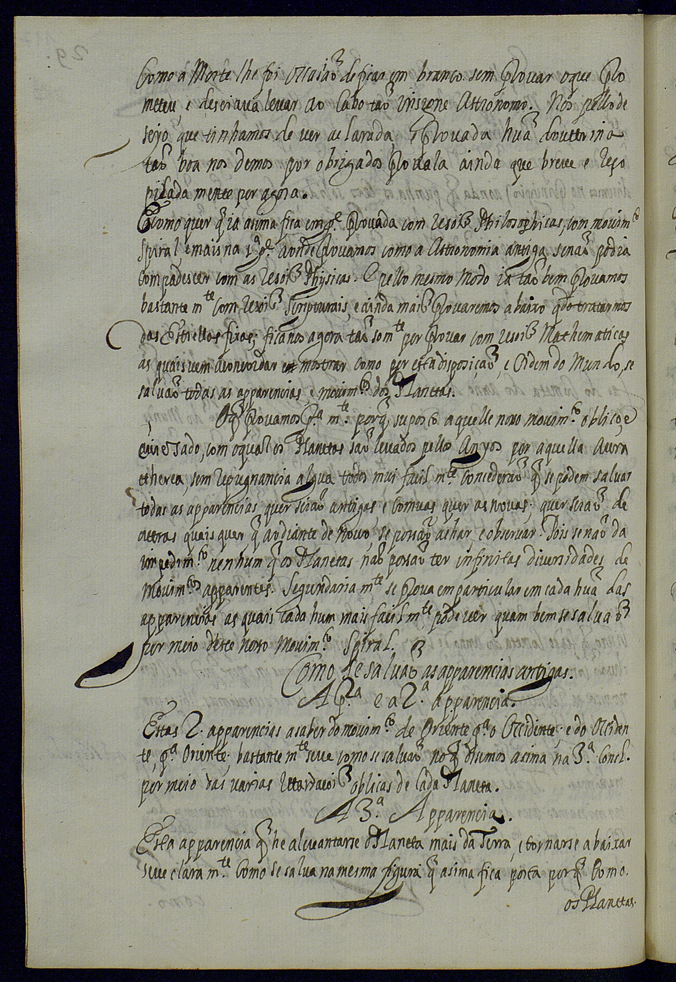 Como a Morte lhe foi occasiaõ de ficar em branco sem provar o que pro
meteu e deseiava levar ao cabo taõ insigne Astronomo. Nos pello de
sejo que tinhamos de ver aclarada e provada huã douttrina
taõ boa nos demos por obrigados provala ainda que breve e reso
pilada mente por agora.
E como quer q̃ ia asima fica em p.te provada com rezoĩs Philosophicas, com movim.to
Spiral e mais na 1.ª p.te aonde provamos como a Astronomia antiga senaõ podia
compadescer com as rezoĩs Physicas. E pello mesmo modo ia taõ bem provamos
bastante m.te com rezoĩs Scripturais, e ainda mais provaremos abaixo q.do tratarmos
das Estrellas fixas; ficanos agora taõ som.te por provar com rezoĩs Mathematicas
as quais vem a concordar em mostrar como por esta disposicaõ, e Ordem do Mundo, se
salvaõ todas as apparencias, e movim.tos dos Planetas.
O q̃ provamos p.ra m.te porq̃, suposto aquelle novo movim.to oblico, e
enviesado, com o qual os Planetas saõ levados pellos Anjos por aquella Aura
etherea, sem repugnancia algũa todos mui facil m.te concederaõ q̃ se podem salvar
todas as apparencias quer sejaõ antigas e comuas quer as novas; quer sejaõ de
outras quais quer q̃ ao diante de novo se possaõ achar, e observar. Pois se naõ da
impedim.to nenhum q̃ os Planetas naõ possaõ ter infinitas diversidades de
movim.tos apparentes. Segundaria m.te se prova em particular em cada huã das
apparencias as quais cada hum mais facil m.te pode ver quam bem se salvaõ
por meio deste novo Movim.to Spiral.
Como se salvaõ as apparencias antigas.
A p.ra e a 2.ª apparencia.
Estas 2. apparencias a saber do movim.to de Oriente p.ª o Occidente, e do Ociden
te, p.ª Oriente, bastante m.te se ve como se salvaõ no q̃ disemos asima na 3.ª Concl.
por meio das varias retardacoĩs oblicas de cada Planeta.
A 3.ª Apparencia.
Esta apparencia q̃ he alevantarse o Planeta mais da Terra, e tornarse a baixar
se ve clara m.te Como se salva na mesma figura q̃ asima fica posta porq̃ Como.
os Planetas.